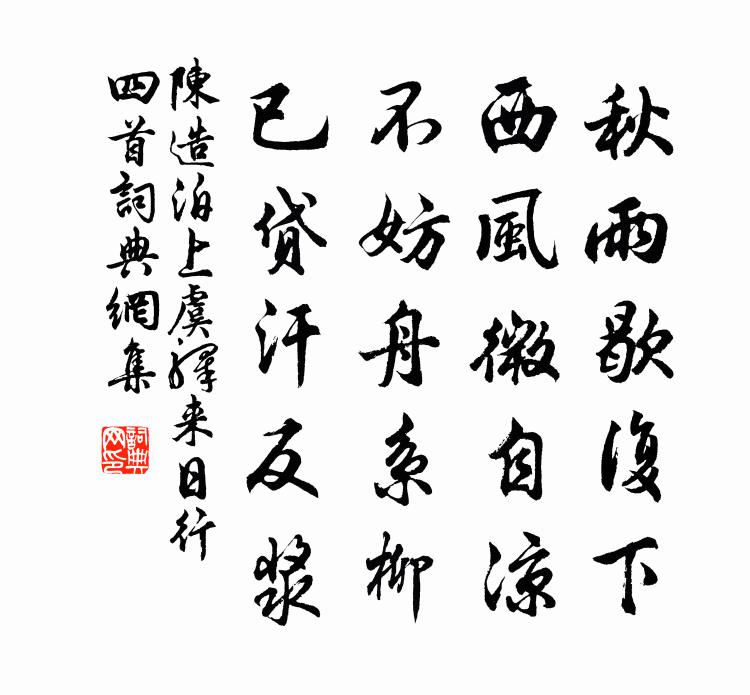 秋雨歇復下
西風微自涼
不妨舟系柳
已貸汗反漿
陳造泊上虞驛来日行
四首詞典網集
詞典网印